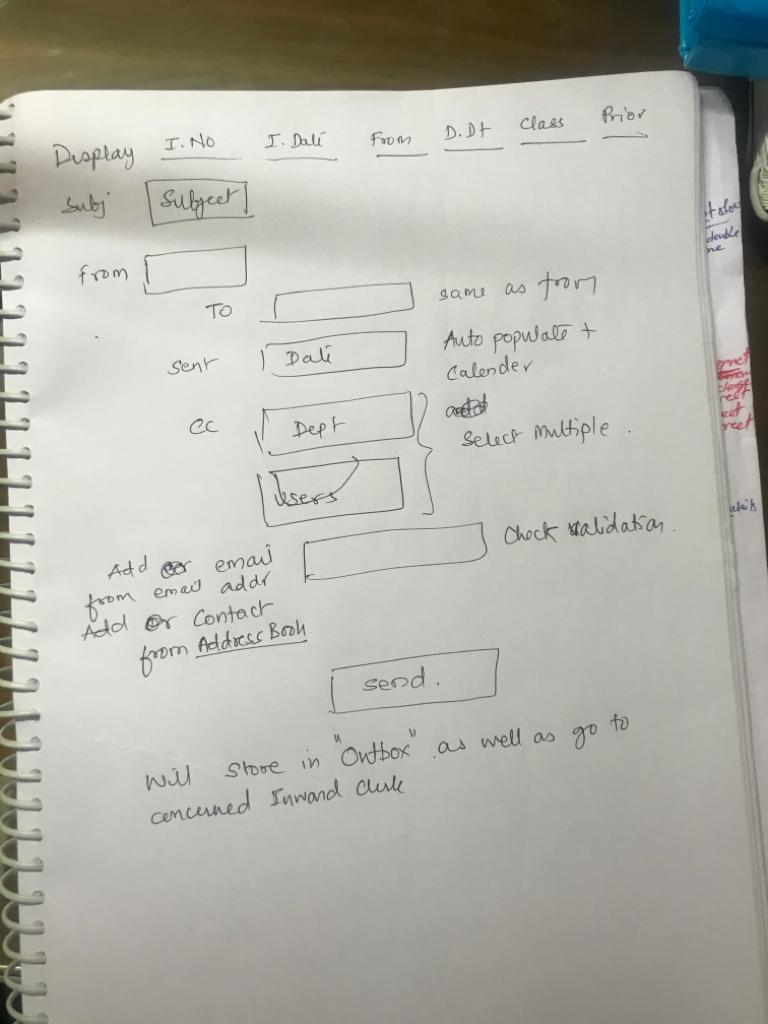 Display I.No I. Date From D.Dt Class Prior
Subj Subject
From
TO same as from
Sent Date Auto populate +
Calender
CC Dept
Select Multiple .
Users
Add or email Check validation .
from email addr
Add or Contact
from Address Book
send .
Will store in "Outbox" as well as go to
concerned Inward Clerk
double